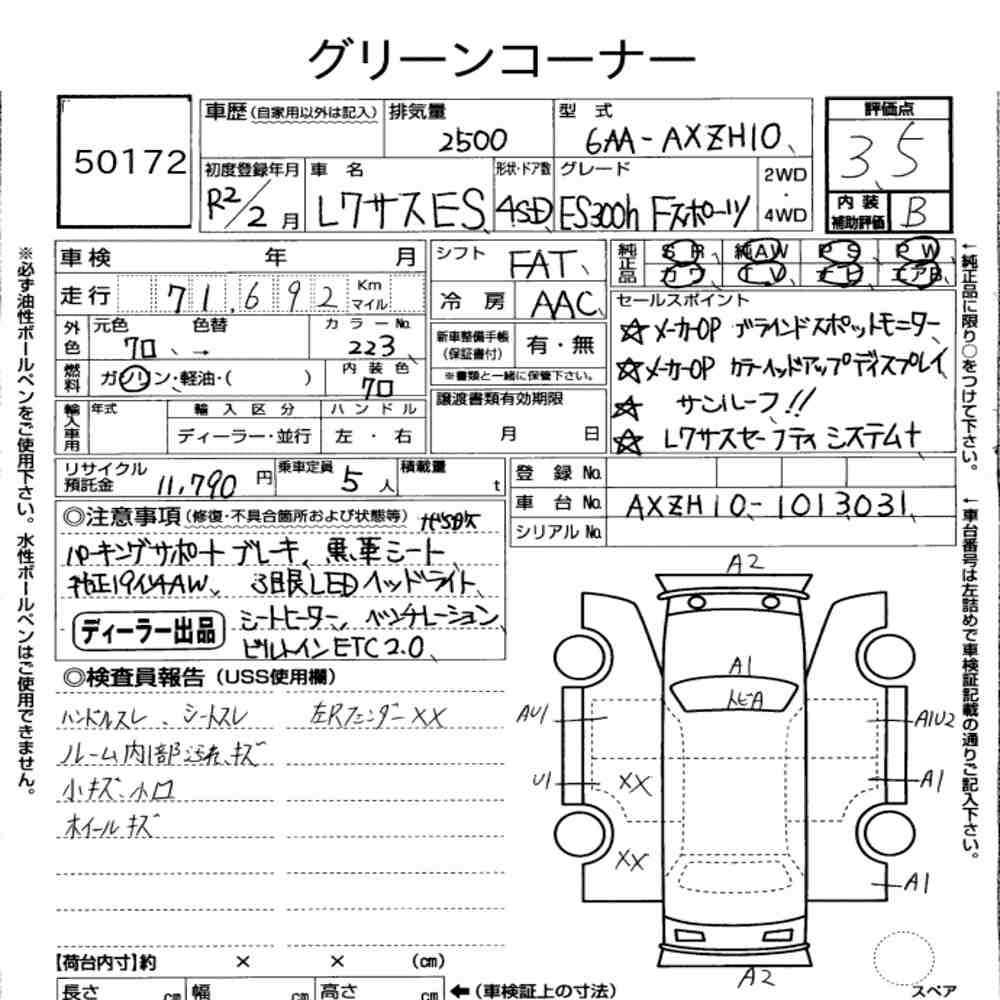 グリーンコーナー
50172
車歴(自家用以外は記入)
排気量
2500
型 式
6AA-AXZH10
評価点
3.5
初度登録年月
R2/2 月
車 名
レクサスES
形状・ドア数
4SD
グレード
ES300h Fスポーツ
2WD
・
4WD
内 装
補助評価
B
車検 年 月
走行 71,692 Km
マイル
シフト
FAT
冷 房
AAC
純正品
SR 純AW PS PW
カワ TV ナビ エアB
外色
元色 色替
クロ →
カラーNo.
223
燃料
ガソリン・軽油・( )
内 装 色
クロ
新車整備手帳
(保証書付)
有・無
※書類と一緒に保管下さい。
輸入車用
年式
輸 入 区 分
ディーラー・並行
ハ ン ド ル
左 ・ 右
譲渡書類有効期限
月 日
セールスポイント
☆メーカーOP ブラインドスポットモニター
☆メーカーOP カラーヘッドアップディスプレイ
☆ サンルーフ!!
☆ レクサスセーフティシステム+
リサイクル
預託金
11,790 円
乗車定員
5 人
積載量
t
登 録 No.
車 台 No.
AXZH10-1013031
シリアル No.
◎注意事項(修復・不具合箇所および状態等)
パーキングサポートブレーキ、黒革シート
純正19インチAW、3眼LEDヘッドライト
シートヒーター、ベンチレーション
ビルトインETC2.0、
ディーラー出品
◎検査員報告(USS使用欄)
ハンドルスレ、シートスレ
左Rフェンダー××
ルーム内1部汚れ、キズ
小キズ、小凹
ホイールキズ
A2
A1
トビA
AU1
A1U2
U1
××
A1
××
A1
A2
スペア
【荷台内寸】約 × × (cm)
長さ cm 幅 cm 高さ cm
←(車検証上の寸法)
※必ず油性ボールペンをご使用下さい。水性ボールペンはご使用できません。
←純正品に限り○をつけて下さい。
←車台番号は左詰めで車検証記載の通りご記入下さい。